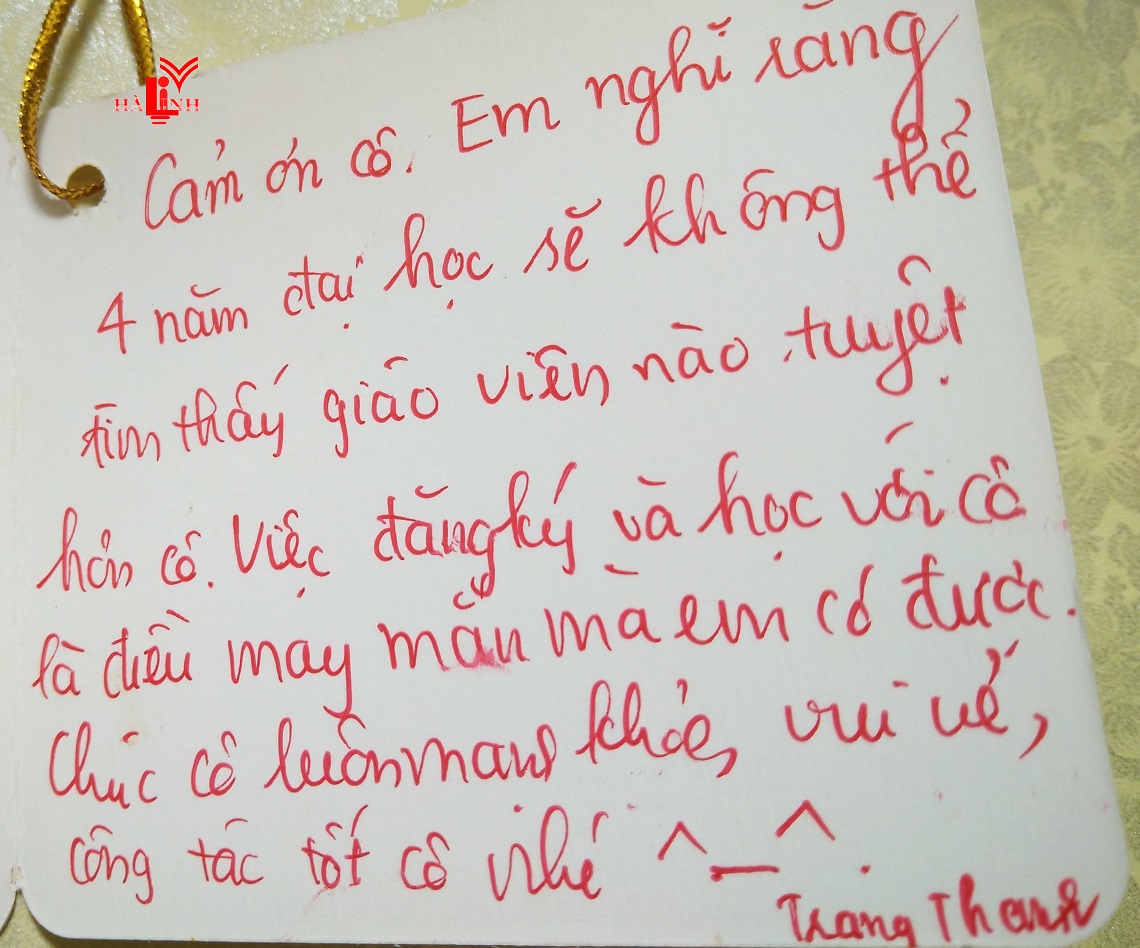 HÀ LINH
Cảm ơn cô. Em nghĩ rằng
4 năm đại học sẽ không thể
tìm thấy giáo viên nào tuyệt
hơn cô. Việc đăng ký và học với cô
là điều may mắn mà em có được.
Chúc cô luôn mạnh khỏe, vui vẻ,
công tác tốt cô nhé ^_^.
Trang Thanh